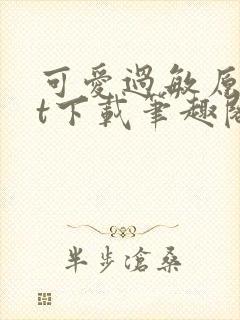 可愛過敏原
t下載筆趣閣
半步滄桑